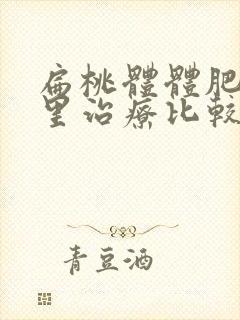 扁桃體體肥
里治療比較
青豆酒